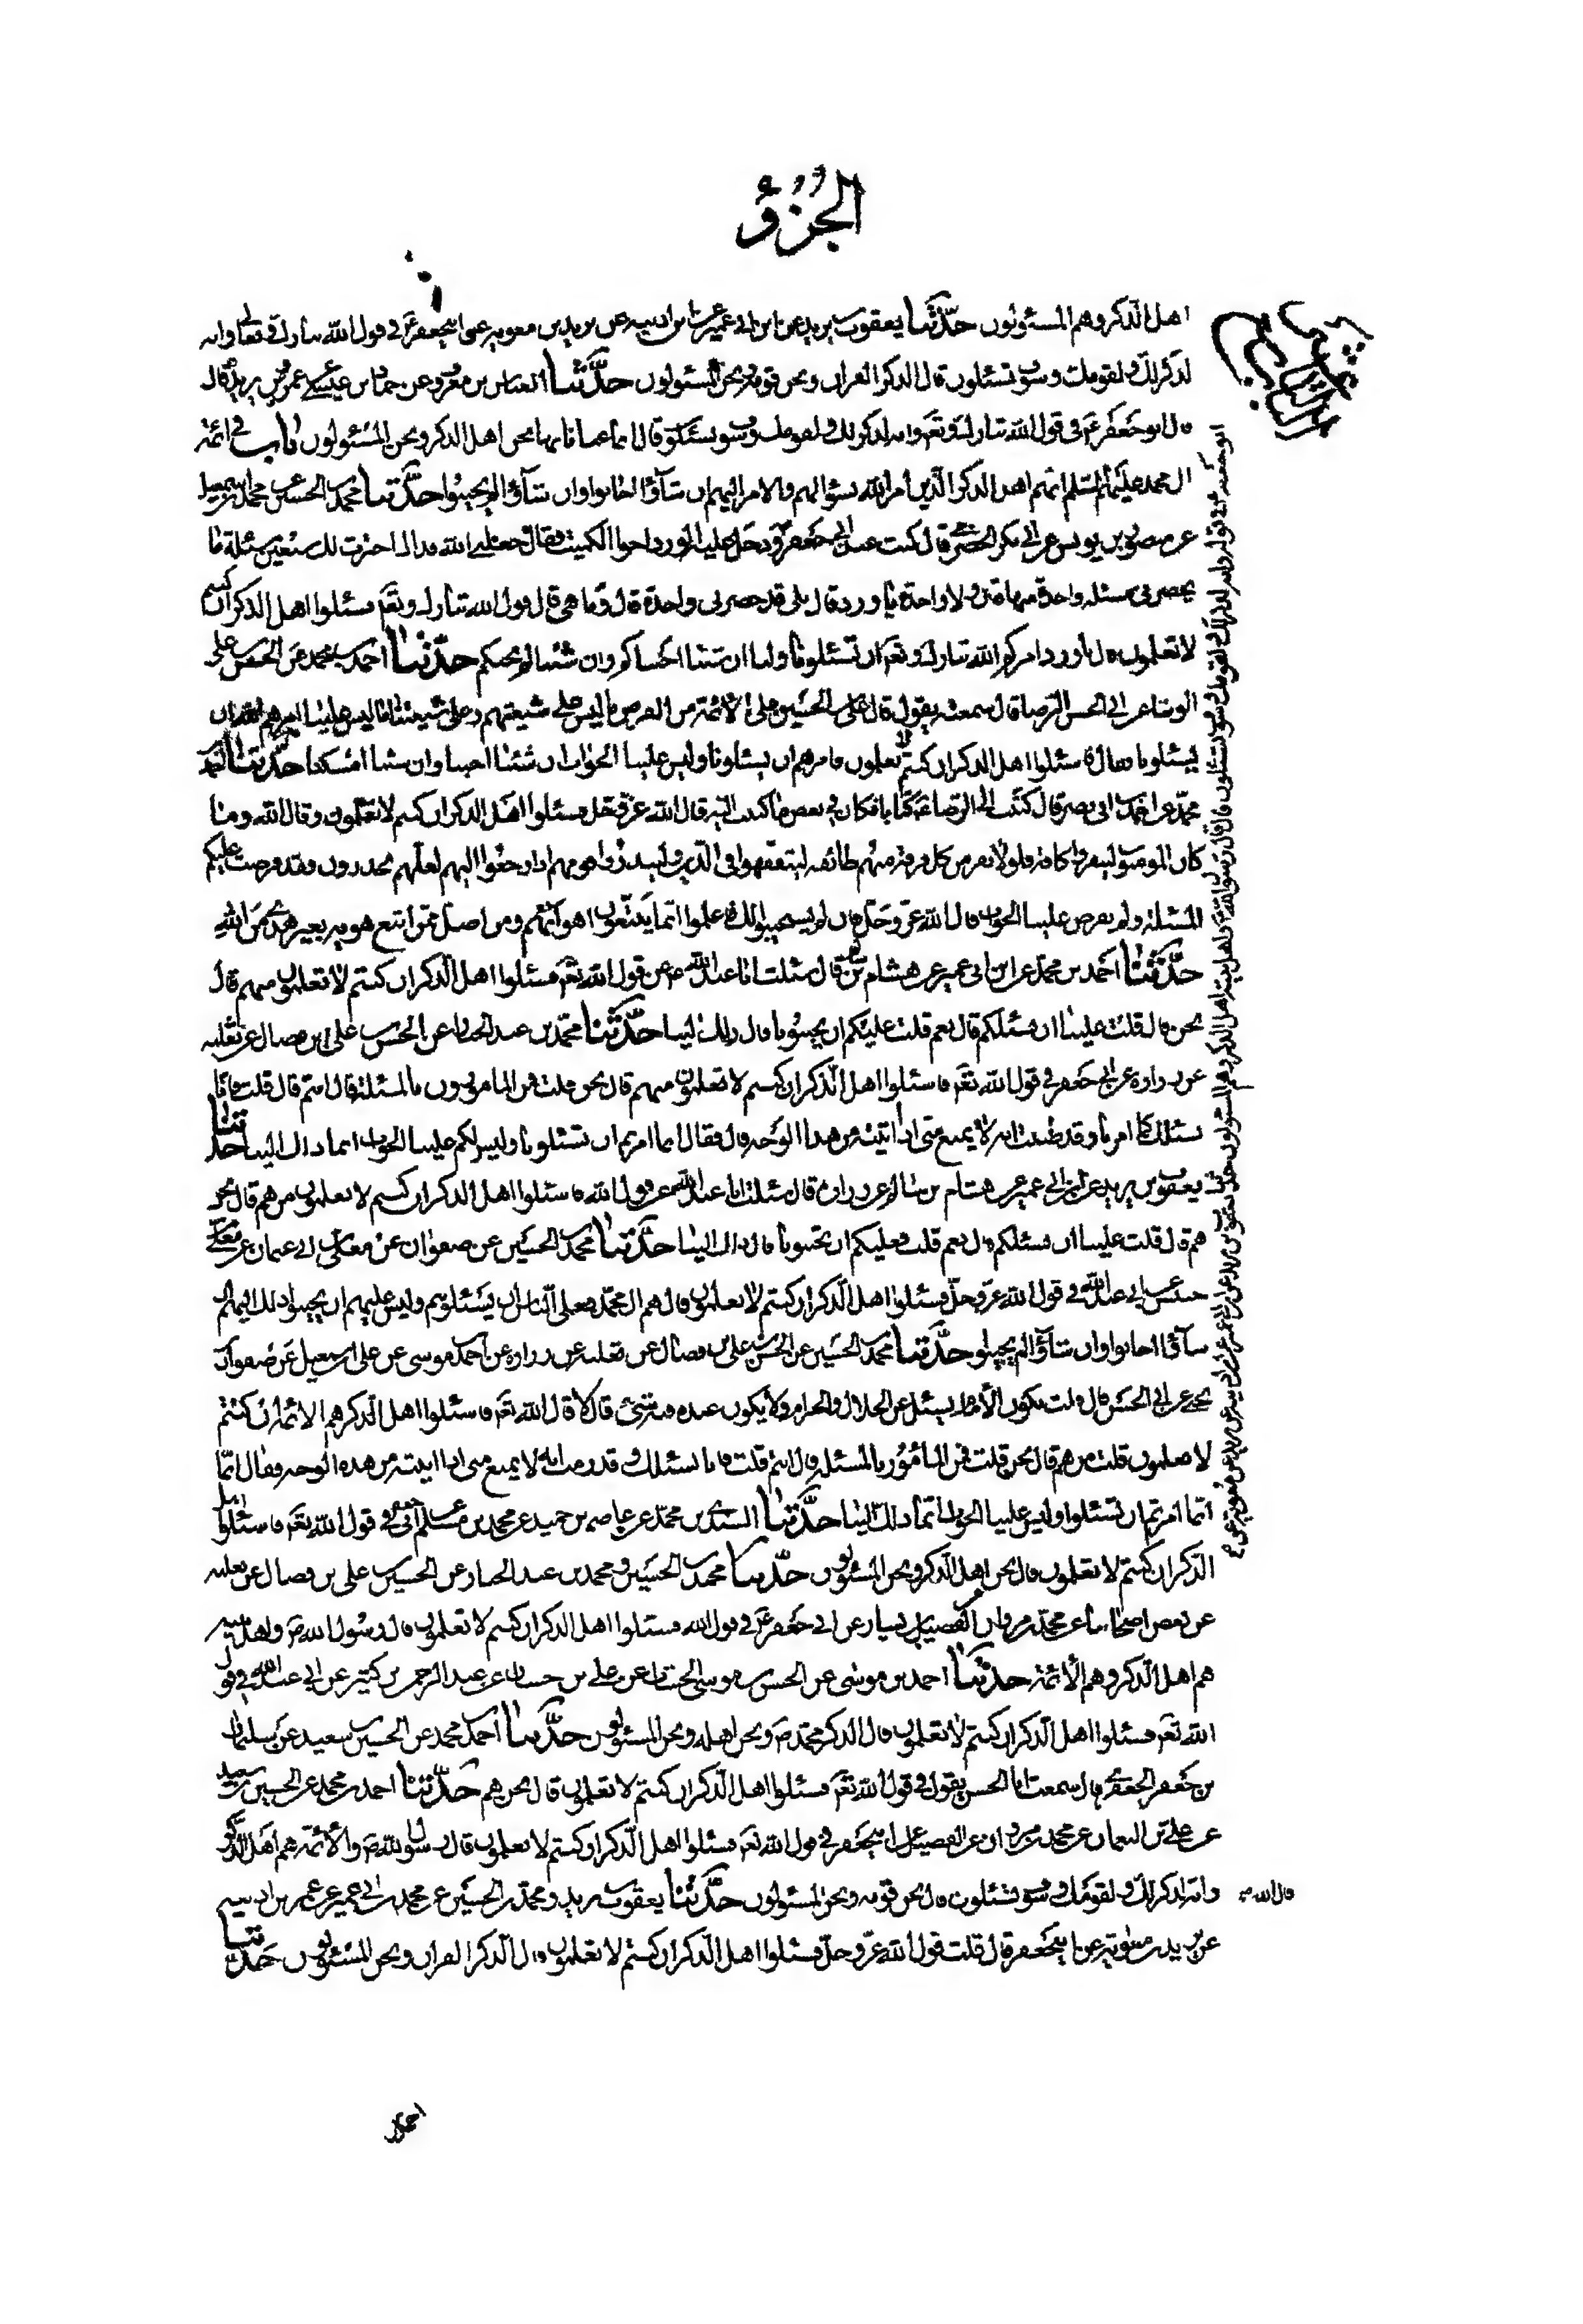 الجُزؤ
اهل الذكر وهم المسئولون حدّثنا يعقوب بن يزيد عن ابن ابي عمير عن ابن اذينه عن بريد بن معويه عن ابيجعفر ع في قول الله تبارك وتعالى وانه
لذكر لك ولقومك وسوف تسئلون قال الذكر القران ونحن قومه ونحن المسئولون حدّثنا العباس بن معروف عن حماد بن عيسى عن عمر بن يزيد قال
قال ابو جعفر ع في قول الله تبارك وتعم وانه لذكر لك ولقومك وسوف تسئلون قال انما عنانا بها نحن اهل الذكر ونحن المسئولون باب في ائمة
ال محمد عليهم السلم انهم اهل الذكر الذين امر الله بسؤالهم والامر اليهم ان شاؤا اجابوا وان شاؤا لم يجيبوا حدّثنا محمد بن الحسين عن محمد بن اسمعيل
عن منصور بن يونس عن ابي بكر الحضرمي قال كنت عند ابي جعفر ع ودخل عليه الورد اخوا الكميت فقال جعلني الله فداك اخترت لك سبعين مسئلة ما
يحضرني مسئلة واحدة منها قال ولا واحدة يا ورد قال بلى قد حضرني واحدة قال وما هي قال قول الله تبارك وتعم فسئلوا اهل الذكر ان كنتم
لا تعلمون قال يا ورد امركم الله تبارك وتعم ان تسئلونا ولنا ان شئنا اجبناكم وان شئنا لم نجبكم حدّثنا احمد بن محمد عن الحسن بن علي
الوشا عن ابي الحسن الرضا قال سمعته يقول قال علي بن الحسين على الائمة من الفرض ما ليس على شيعتهم وعلى شيعتنا ما ليس علينا امرهم الله ان
يسئلونا فقال فاسئلوا اهل الذكر ان كنتم لا تعلمون فامرهم ان يسئلونا وليس علينا الجواب ان شئنا اجبنا وان شئنا امسكنا حدّثنا احمد
محمد عن احمد بن ابي نصر قال كتبت الى الرضا ع كتابا فكان في بعض ما كتبت اليه قال الله عز وجل فسئلوا اهل الذكر ان كنتم لا تعلمون وقال الله وما
كان المومنون لينفروا كافة فلولا نفر من كل فرقة منهم طائفه ليتفقهوا في الدين ولينذروا قومهم اذا رجعوا اليهم لعلهم يحذرون فقد فرضت عليكم
المسئلة ولم يفرض علينا الجواب قال الله عز وجل فان لم يستجيبوا لك فاعلموا انما يتبعون اهوائهم ومن اضل ممن اتبع هويه بغير هدى من الله
حدّثنا احمد بن محمد عن ابن ابي عمير عن هشام بن سالم قال سئلت ابا عبد الله ع عن قول الله تعم فسئلوا اهل الذكر ان كنتم لا تعلمون من هم قال
نحن قال قلت علينا ان نسئلكم قال نعم قلت عليكم ان تجيبونا قال ذلك الينا حدّثنا محمد بن عبد الجبار عن الحسن بن علي بن فضال عن ثعلبه
عن زراره عن ابي جعفر في قول الله تعم فاسئلوا اهل الذكر ان كنتم لا تعلمون من هم قال نحن قلت فمن المامورون بالمسئلة قال انتم قال قلت فانا
نسئلك كما امرنا وقد ظننت انه لا يمنع مني اذا اتيته من هذا الوجه قال فقال انما امرتم ان تسئلونا وليس لكم علينا الجواب انما ذلك الينا حدّثنا
يعقوب بن يزيد عن ابن ابي عمير عن هشام بن سالم عن زراره قال سئلت ابا عبد الله عن قول الله فاسئلوا اهل الذكر ان كنتم لا تعلمون من هم قال نحن
هم قال قلت علينا ان نسئلكم قال نعم قلت فعليكم ان تجيبونا قال ذلك الينا حدّثنا محمد بن الحسين عن صفوان عن معلى بن ابي عثمان عن معلى بن
خنيس عن ابي عبد الله في قول الله عز وجل فسئلوا اهل الذكر ان كنتم لا تعلمون قال هم ال محمد فعلى الناس ان يسئلوهم وليس عليهم ان يجيبوا ذلك اليهم ان
شاؤا اجابوا وان شاؤا لم يجيبوا حدّثنا محمد بن الحسين عن الحسن بن علي بن فضال عن ثعلبه عن زراره عن احمد بن موسى عن علي بن اسمعيل عن صفوان بن
يحيى عن ابي الحسن قال قلت يكون الامام يسئل عن الحلال والحرام ولا يكون عنده فيه شيئ قال لا قال الله تعم فاسئلوا اهل الذكر هم الائمة ان كنتم
لا تعلمون قلت من هم قال نحن قلت فمن المأمور بالمسئلة قال انتم قلت فانا نسئلك وقد رمت انه لا يمنع مني اذا اتيته من هذه الوجه فقال انما
انما امرتم ان تسئلوا وليس علينا الجواب انما ذلك الينا حدّثنا السندي بن محمد عن عاصم بن حميد عن محمد بن مسلم عن ابي جعفر في قول الله تعم فاسئلوا اهل
الذكر ان كنتم لا تعلمون قال نحن اهل الذكر ونحن المسئولون حدّثنا محمد بن الحسين ومحمد بن عبد الجبار عن الحسن بن علي بن فضال عن ثعلبه
عن بعض اصحابنا عن محمد بن مروان عن الفضيل بن يسار عن ابي جعفر ع في قول الله فسئلوا اهل الذكر ان كنتم لا تعلمون قال رسول الله ص واهل بيته
هم اهل الذكر وهم الائمة حدّثنا احمد بن موسى عن الحسن بن موسى الخشاب عن علي بن حسان عن عبد الرحمن بن كثير عن ابي عبد الله في قول
الله تعم فسئلوا اهل الذكر ان كنتم لا تعلمون قال الذكر محمد ص ونحن اهله ونحن المسئولون حدّثنا احمد بن محمد عن الحسين بن سعيد عن سليمان
بن جعفر الجعفري قال سمعت ابا الحسن يقول في قول الله تعم فسئلوا اهل الذكر ان كنتم لا تعلمون قال نحن هم حدّثنا احمد بن محمد عن الحسين بن سعيد
عن علي بن النعمان عن محمد بن مروان عن الفضيل عن ابيجعفر في قول الله تعم فسئلوا اهل الذكر ان كنتم لا تعلمون قال رسول الله ص والائمة هم اهل الذكر
قال الله
وانه لذكر لك ولقومك وسوف تسئلون قال نحن قومه ونحن المسئولون حدّثنا يعقوب بن يزيد ومحمد بن الحسين عن محمد بن ابي عمير عن عمر بن اذينه
عن بريد بن معويه عن ابيجعفر قال قلت قول الله عز وجل فسئلوا اهل الذكر ان كنتم لا تعلمون قال الذكر القران ونحن المسئولون حدّثنا
احمد